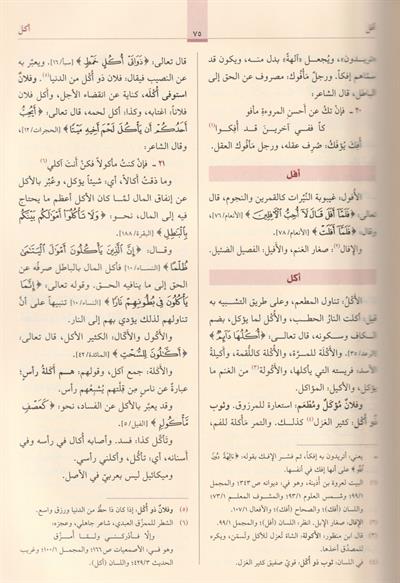 أفل
٧٥
أكل
«تريدون»، ويُجعل «آلهة» بدل منه، ويكون قد
سمّاهم إفكاً. ورجل مأفوك: مصروف عن الحق إلى
الباطل، قال الشاعر:
٢٠ ـ فإنْ تكُ عن أحسنِ المروءةِ مأفو
كاً ففي آخرينَ قد أُفِكوا(١)
أُفِكَ يُؤفَكُ: صُرف عقله، ورجل مأفوك العقل.
أفل
الأُفول: غيبوبة النَّيِّرات كالقمرين والنجوم، قال
تعالى: ﴿فَلَمَّا أَفَلَ قَالَ لَا أُحِبُّ الْآفِلِينَ﴾ [الأنعام/٧٦]،
وقال: ﴿فَلَمَّا أَفَلَتْ﴾ [الأنعام/٧٨].
والإفال(٢): صغار الغنم، والأفيل: الفصيل الضئيل.
أكل
الأَكْل: تناول المطعم، وعلى طريق التشبيه به
قيل: أكلت النارُ الحطب، والأُكْل لما يؤكل، بضم
الكاف وسكونه، قال تعالى: ﴿أُكُلُهَا دَائِمٌ﴾
[الرعد/٣٥]، والأَكْلة للمرّة، والأُكلة كاللُّقمة، وأكيلةُ
الأسد: فريسته التي يأكلها، والأَكولة(٣) من الغنم ما
يؤكل، والأكيل: المؤاكل.
وفلانٌ مُؤْكَلٌ ومُطعَم: استعارة للمرزوق. وثوب
ذُو أُكُل: كثير الغزل(٤) كذلك. والتمر مَأكلة للفم،
قال تعالى: ﴿ذَوَاتَيْ أُكُلٍ خَمْطٍ﴾ [سبأ/١٦]، ويعبّر به
عن النصيب فيقال: فلان ذو أُكُل من الدنيا(٥). وفلان
استوفى أُكُلَه، كناية عن انقضاء الأجل، وأكل فلان
فلاناً: اغتابه، وكذا: أكل لحمه، قال تعالى: ﴿أَيُحِبُّ
أَحَدُكُمْ أَنْ يَأْكُلَ لَحْمَ أَخِيهِ مَيْتًا﴾ [الحجرات/١٢]،
وقال الشاعر:
٢١ ـ فإنْ كنتُ مأكولاً فكنْ أنتَ آكلي(٦)
وما ذقتُ أَكالاً، أي: شيئاً يؤكل، وعُبّر بالأكل
عن إنفاق المال لمّا كان الأكل أعظم ما يحتاج
فيه إلى المال، نحو: ﴿وَلَا تَأْكُلُوا أَمْوَالَكُمْ بَيْنَكُمْ
بِالْبَاطِلِ﴾ [البقرة/١٨٨].
وقال: ﴿إِنَّ الَّذِينَ يَأْكُلُونَ أَمْوَالَ الْيَتَامَى
ظُلْمًا﴾ [النساء/١٠] فأكل المال بالباطل صرفُه عن
الحق إلى ما ينافيه الحق، وقوله تعالى: ﴿إِنَّمَا
يَأْكُلُونَ فِي بُطُونِهِمْ نَارًا﴾ [النساء/١٠] تنبيهاً على أنّ
تناولهم لذلك يؤدي بهم إلى النار.
والأَكول والأكّال: الكثير الأكل، قال تعالى:
﴿أَكَّالُونَ لِلسُّحْتِ﴾ [المائدة/٤٢].
والأَكَلَة: جمع آكل، وقولهم: هم أَكَلَةُ رأسٍ:
عبارةٌ عن ناسٍ من قلّتهم يُشبعُهم رأس.
وقد يعبّر بالأكل عن الفساد، نحو: ﴿كَعَصْفٍ
مَأْكُولٍ﴾ [الفيل/٥].
وتأكّل كذا: فسد. وأصابه أُكال في رأسه وفي
أسنانه، أي: تأكّل، وأكلني رأسي.
وميكائيل ليس بعربيّ في الأصل.
يعني: أتريدون به إفكاً، ثم فسّر الإفك بقوله:
على أنها إفك في أنفسها.
(١) البيت لعروة بن أُذينة، وهو في: ديوانه ص ٣٤٣؛ والمجمل
٩٩/١؛ وشمس العلوم ٩٣/١؛ والمشوف المعلم ٧٣/١؛
واللسان (أفك)؛ والصحاح (أفك)؛ والأفعال ١٠٧/١.
(٢) الإفال: صغار الإبل. انظر: اللسان (أفل)؛ والمجمل ٩٩/١.
(٣) قال ابن منظور: الأكولة: الشاة تُعزل للأكل وتُسمّن، ويكره
للمصدّق أخذها.
(٤) في اللسان: ثوب ذو أُكُل: قوي صفيق كثير الغزل.
(٥) وفلانٌ ذو أُكُل: إذا كان ذا حظّ من الدنيا ورزق واسع.
(٦) الشطر للممزّق العبدي، شاعر جاهلي، وعجزه:
وإلّا فأدركني ولمّا أُمزَّقِ
وهو في: الأصمعيات ص ١٦٦؛ والمجمل ١٠٠/١؛ وغريب
الحديث ٤٢٩/٣؛ واللسان (أكل).